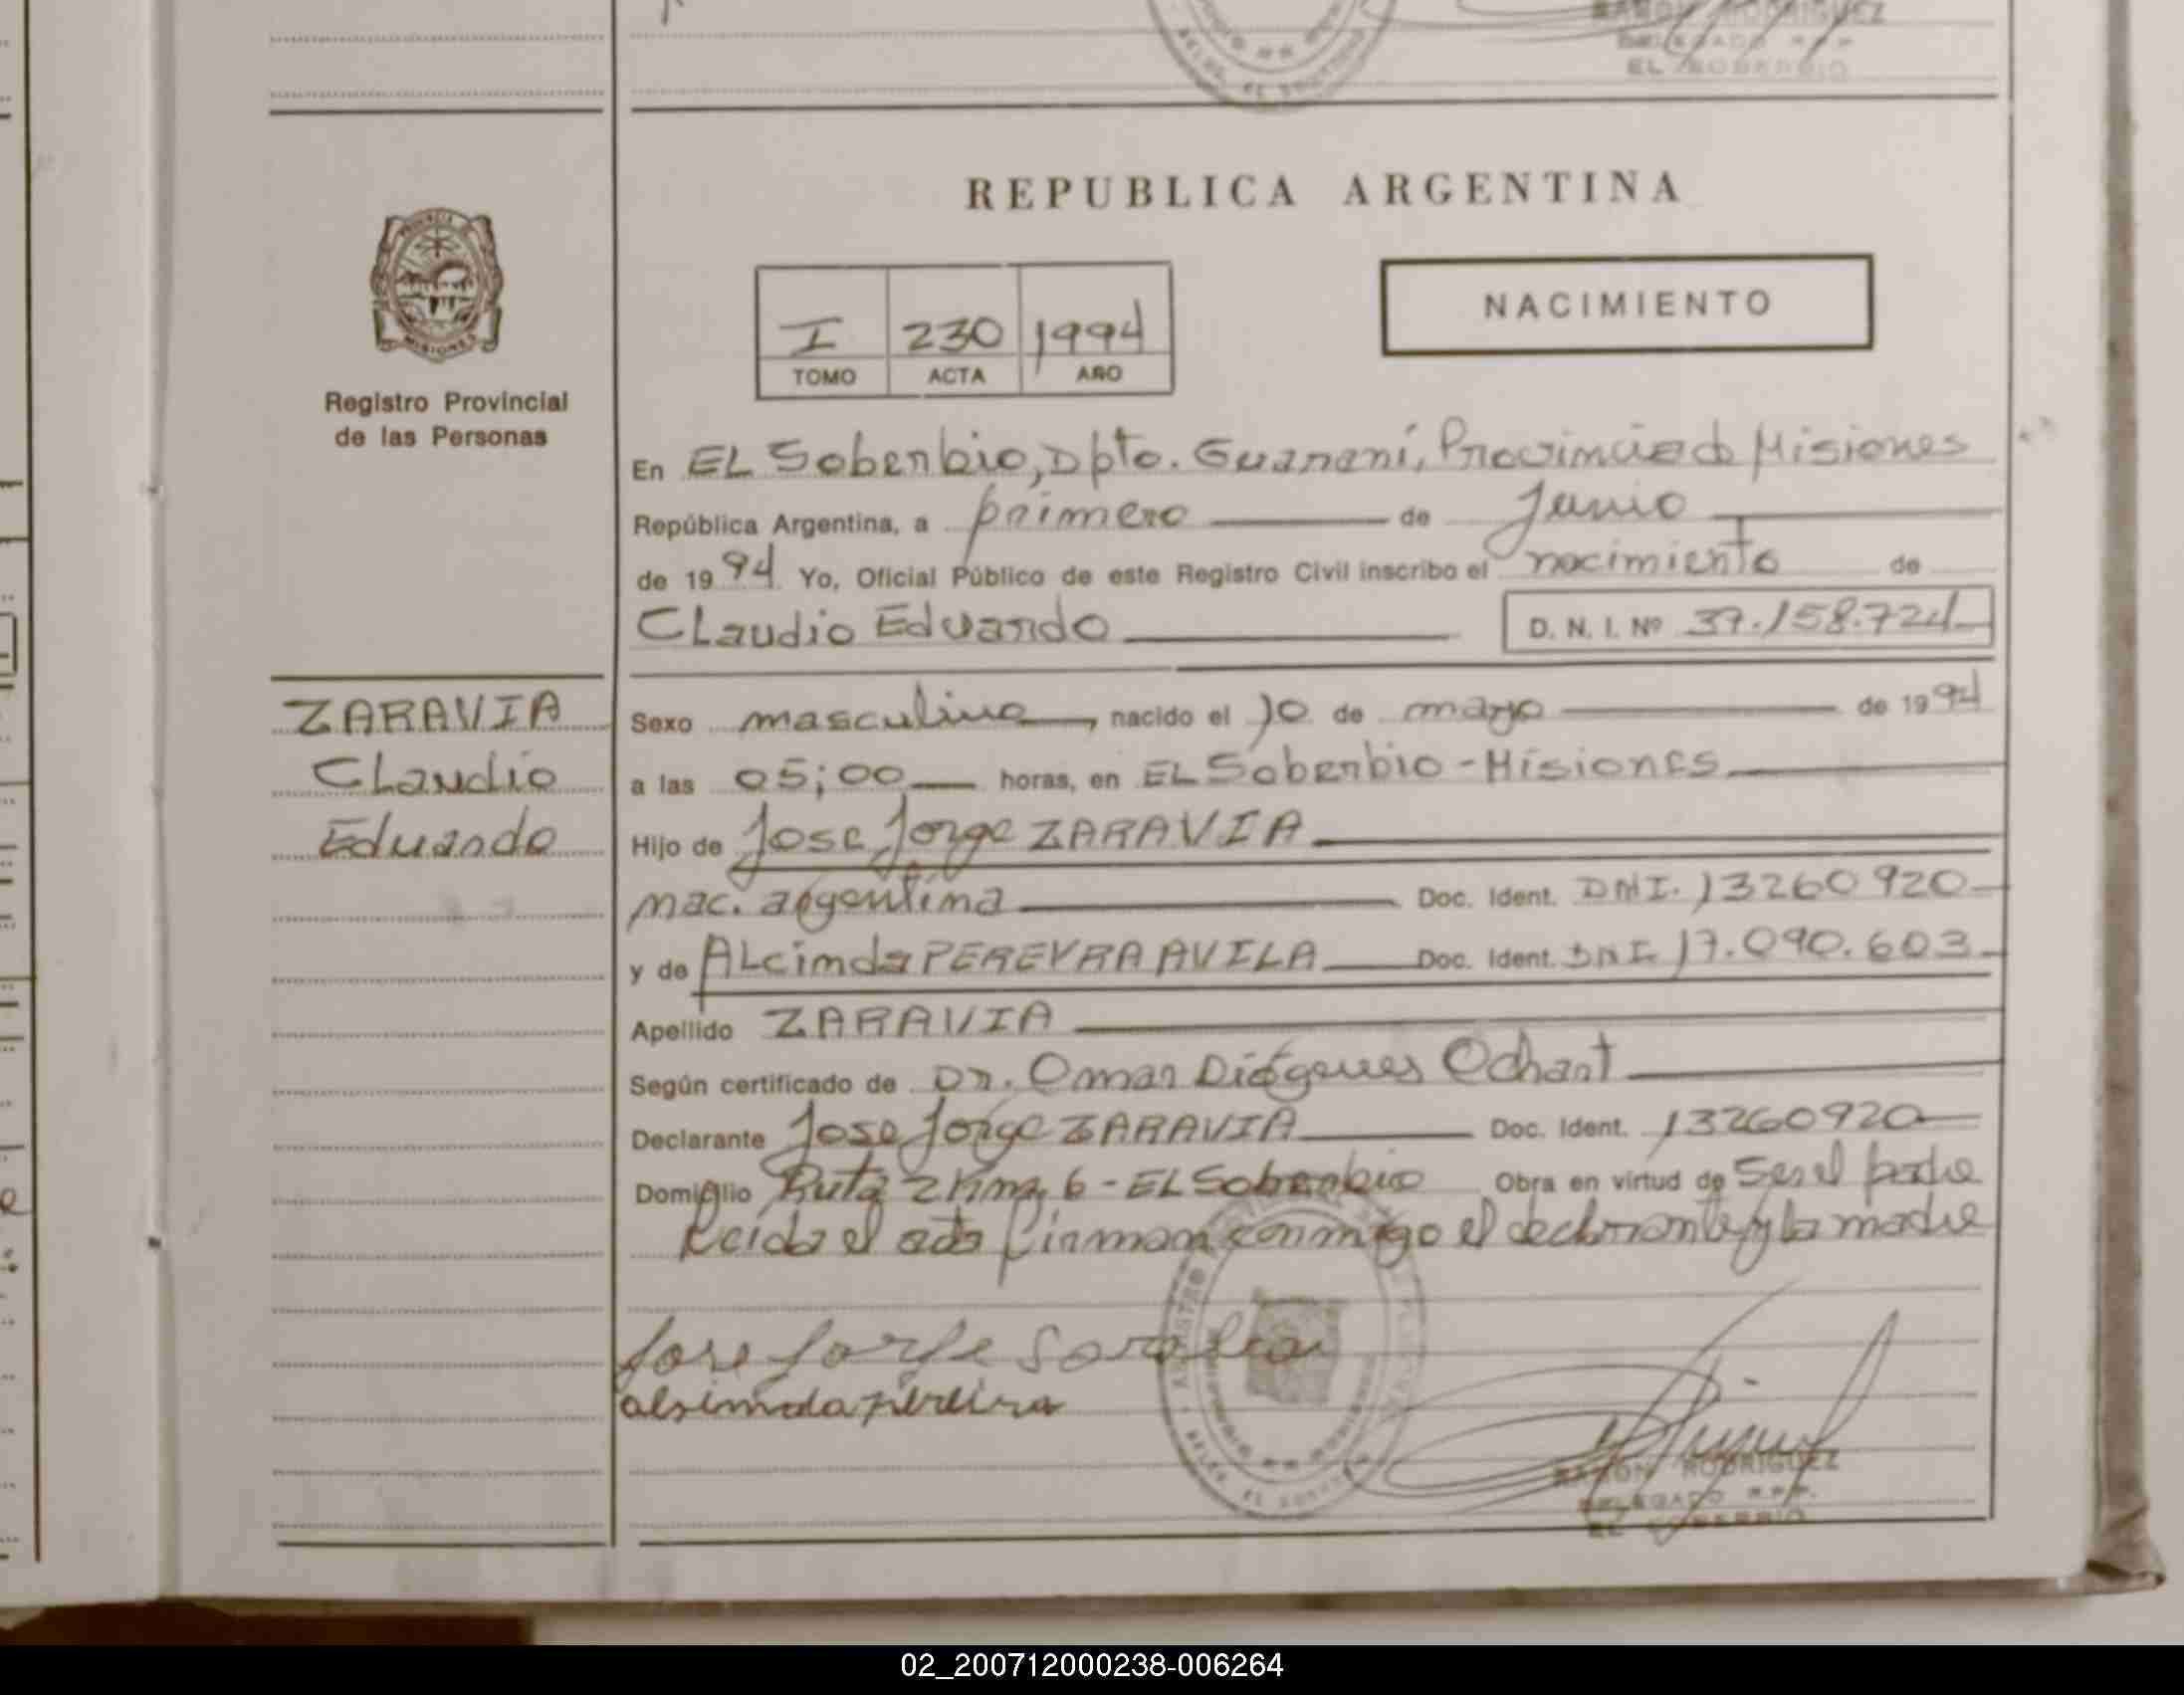 RAMON RODRIGUEZ
DELEGADO R.P.P.
EL SOBERBIO
REPUBLICA ARGENTINA
PROVINCIA
MISIONES
Registro Provincial
de las Personas
I 230 1994
TOMO ACTA AÑO
NACIMIENTO
En EL Soberbio, Dpto. Guaraní, Provincia de Misiones
República Argentina, a primero de Junio
de 1994 Yo, Oficial Público de este Registro Civil inscribo el nacimiento de
CLaudio Eduardo
D. N. I. Nº 37.158.724
ZARAVIA
CLaudio
Eduardo
Sexo masculino, nacido el 10 de mayo de 1994
a las 05;00 horas, en EL Soberbio - Misiones
Hijo de Jose Jorge ZARAVIA
nac. argentina Doc. Ident. DNI. 13260920
y de ALcinda PEREYRA AVILA Doc. Ident. DNI. 17.090.603
Apellido ZARAVIA
Según certificado de Dr. Omar Diógenes Ochart
Declarante Jose Jorge ZARAVIA Doc. Ident. 13260920
Domicilio Ruta 2 Km. 6 - EL Soberbio Obra en virtud de Ser el padre
Leida el acta firman conmigo el declarante y la madre
Jose Jorge Saravia
alsinda pereira
RAMON RODRIGUEZ
DELEGADO R.P.P.
EL SOBERBIO
02_200712000238-006264